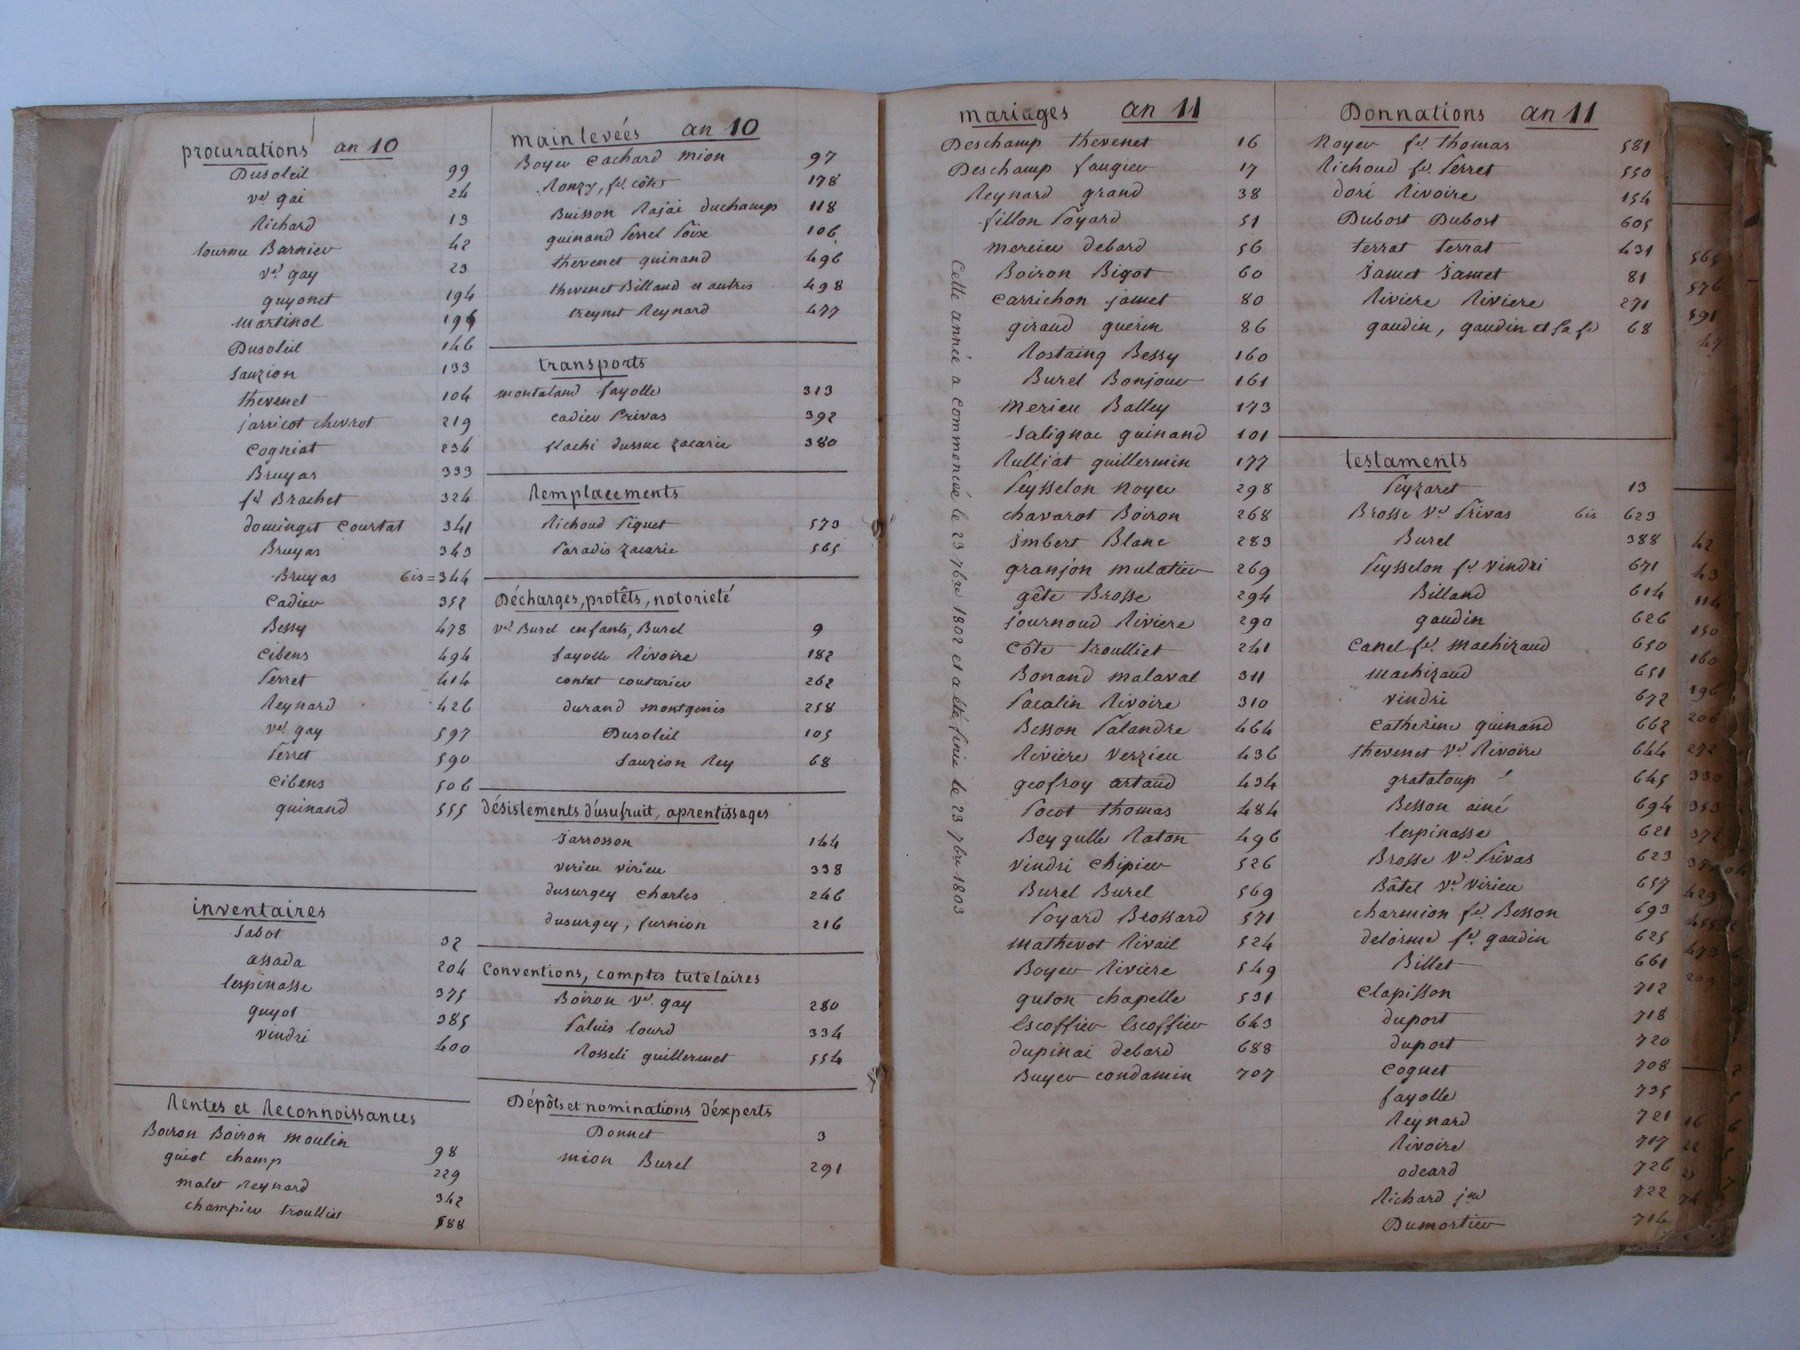 procurations an 10
Dusoleil 99
ve gai 24
Richard 13
tournu Barnieu 42
ve gay 23
guyonet 194
martinol 195
Dusoleil 146
Sauzion 133
thevenet 104
jarricot chevrot 219
Cogniat 234
Bruyas 333
fe Brachet 324
dominget Courtat 341
Bruyas 343
Bruyas bis = 344
Cadieu 352
Bessy 478
Cibens 494
Perret 414
Reynard 426
ve gay 597
Perret 590
Cibens 506
guinand 555
inventaires
Sabot 32
assada 204
lespinasse 375
guyot 385
vindri 400
Rentes et Reconnoissances
Boiron Boiron moulin 98
guiot champ 229
malet Reynard 342
champier troullier 588
mainlevées an 10
Boyer Cachard mion 97
Ronzy, fe côte 178
Buisson Rajai duchamp 118
guinand Perret Poix 106
thevenet guinand 496
thevenet Billaud et autres 498
treynet Reynard 477
transports
montaland fayolle 313
cadieu Privas 392
Stachi dussuc zacarie 380
Remplacements
Richoud Piguet 573
Paradis zacarie 565
Décharges, protêts, notorieté
ve Burel enfants, Burel 9
fayolle Rivoire 182
contat couturier 262
durand montgenis 258
Dusoleil 105
Sauzion Rey 68
désistements d'usufruit, aprentissages
Jarrosson 144
virieu virieu 338
dusurgey Charles 246
dusurgey, furnion 216
Conventions, comptes tutelaires
Boiron ve gay 280
Paluis lourd 334
Rosseli guillermet 554
Dépôts et nominations d'éxperts
Donnet 3
mion Burel 291
mariages an 11
Deschamp thevenet 16
Deschamp faugier 17
Reynard grand 38
fillon Poyard 51
mercier debard 56
Boiron Bigot 60
Carrichon jamet 80
giraud guerin 86
Rostaing Bessy 160
Burel Bonjour 161
merieu Balley 173
Salignac guinand 101
Rulliat guillermin 177
Peysselon noyer 298
chavarot Boiron 268
imbert Blanc 283
granjon mulatier 269
gête Brosse 294
journoud Riviere 290
Côte troulliet 241
Bonand malaval 311
Pacalin Rivoire 310
Besson Palandre 464
Riviere verzieu 436
geofroy artaud 434
Pocot thomas 484
Beygulle Raton 496
vindri Chipier 526
Burel Burel 569
Poyard Brossard 571
mathevot Rivail 524
Boyer Riviere 549
guton chapelle 531
Escoffier Escoffier 643
dupinai debard 688
Buyer condamin 707
Cette année a commencée le 23 7bre 1802 et a été finie le 23 7bre 1803
Donnations an 11
Noyer fe thomas 581
Richoud fe Perret 550
doré Rivoire 154
Dubost Dubost 605
terrat terrat 431
Jamet Jamet 81
Riviere Riviere 271
gaudin, gaudin et sa fe 68
testaments
Peyzaret 13
Brosse ve Privas bis 623
Burel 388
Peysselon fe vindri 671
Billand 614
gaudin 626
Canel fe machizaud 650
machizaud 651
vindri 672
Catherine guinand 662
thevenet ve Rivoire 644
grataloup 645
Besson ainé 694
lespinasse 621
Brosse ve Privas 623
Bâtel ve virieu 657
charmion fe Besson 693
delorme fe gaudin 625
Billet 661
Clapisson 712
duport 718
duport 720
Coguet 708
fayolle 735
Reynard 721
Rivoire 717
odeard 726
Richard jne 722
Dumortier 714
565
576
591
47
42
43
114
150
160
196
206
272
330
353
372
429
455
473
209